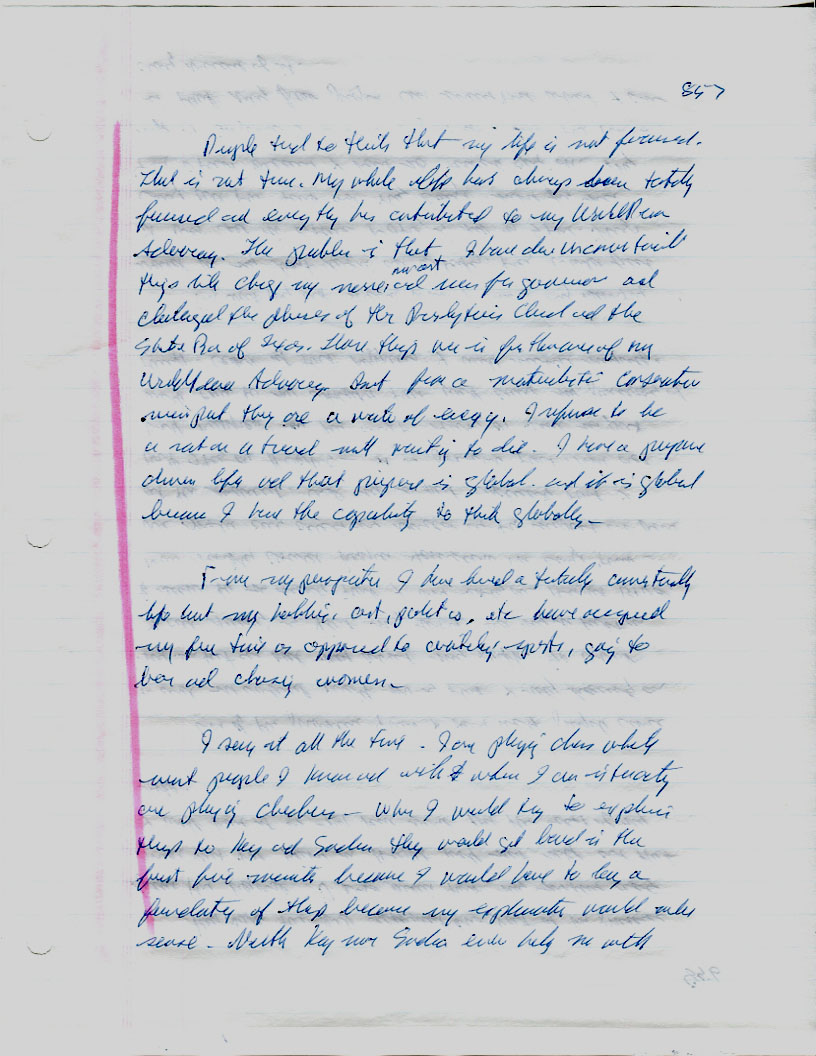 857
People tend to think that my life is not focused.
That is not true. My whole life has always been totally
focused and everything has contributed to my World Peace
Advocacy. The problem is that I have done unconventional
things like chang my name and ran for governor and
challenged the phonies of the Presbyterian Church and the
State Bar of Texas. Those things were in furtherance of my
World Peace Advocacy. But from a materialistic conservative
viewpoint they are a waste of energy. I refuse to be
a rat on a tread mill waiting to die. I have a purpose
driven life and that purpose is global. and it is global
because I have the capability to think globally –
From my perspective I have lived a totally
life but my hobbies, art, politics, etc have occupied
my free time as opposed to watching sports, going to
bars and chasing women –
I see it all the time. I am playing chess while
most people I know and with when I am
are playing checkers – When I would try to explain
things to Kay and Sandra they would get bored in the
first five minutes because I would have to lay a
foundation of things because my explanation would make
sense – Neither Kay nor Sandra ever help me with